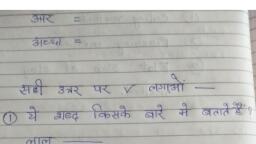 और =
अच्छा =
सही उत्तर पर ✓ लगाओं —
① ये शब्द किसके बारे मे बताते हैं?
लाल —